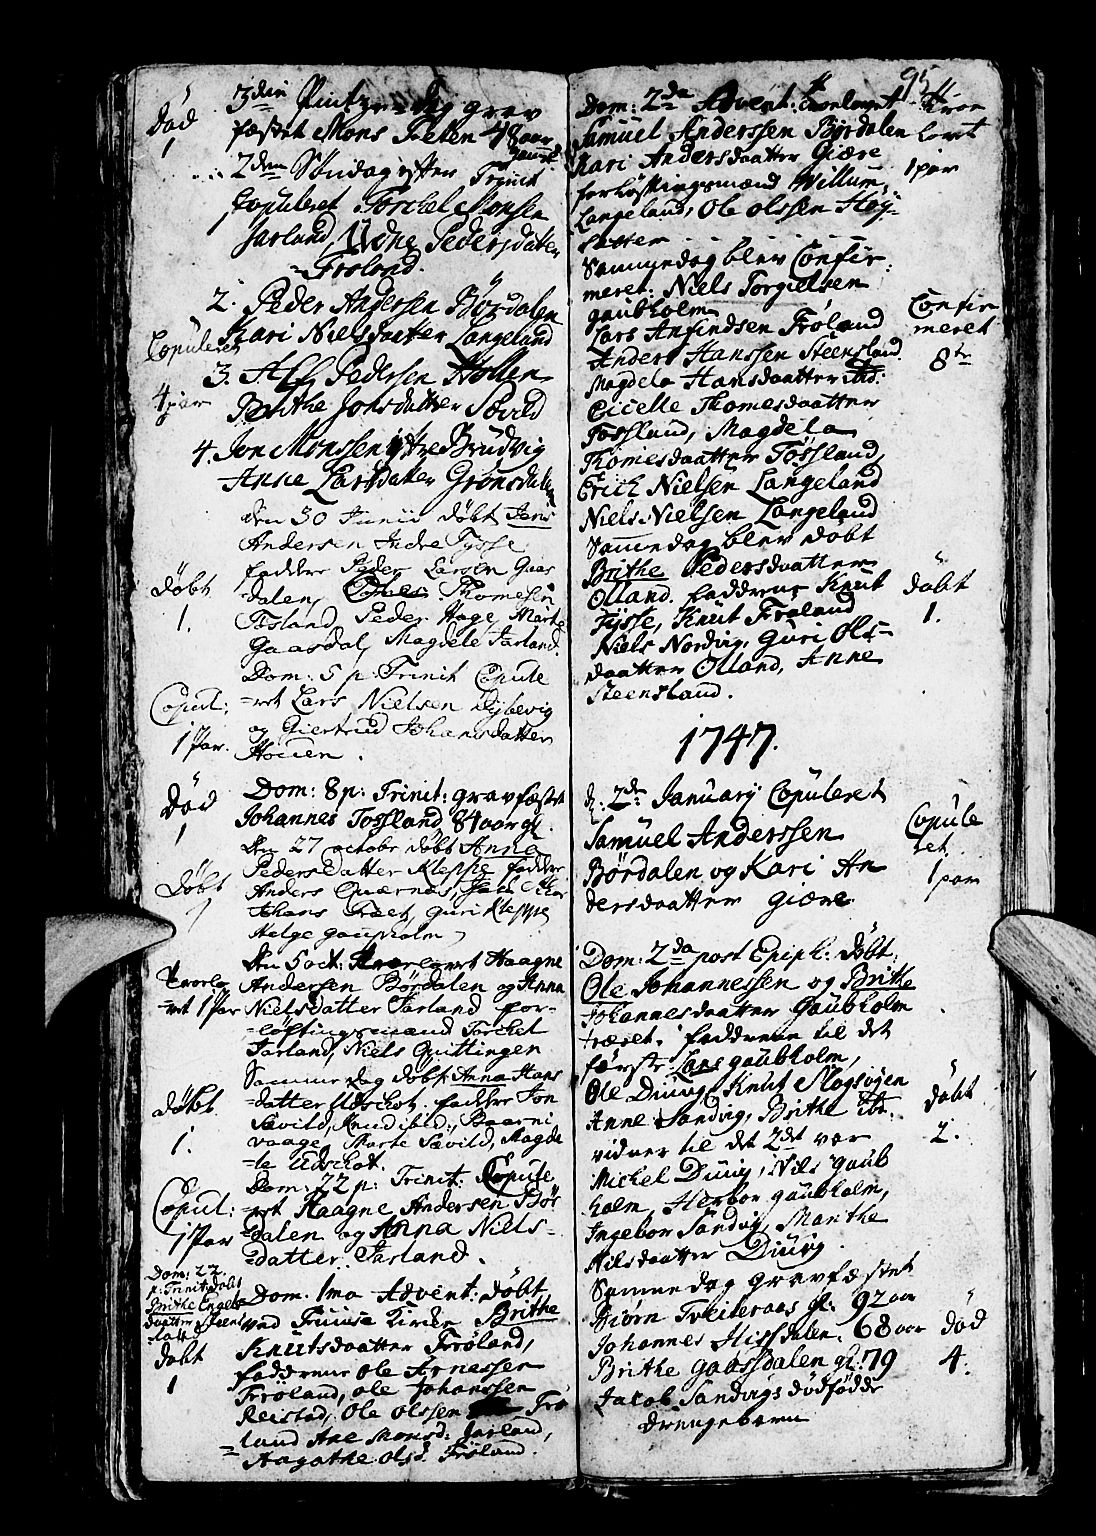 død
1
3die Pintzedag grav
fæstet Mons 48 aar
2den Søndag efter Trinit
Copuleret Torchel Monsen
Jarland, Pedersdatter
Frøland.
2. Peder Andersen Børdalen
Kari Nielsdatter Langeland
Copuleret
4 par
3. Pedersen Hollen
Brithe Johsdatter Sævild
4. Jon Monsen ytre Brudvig
Anne Larsdatter Grønsdalen
den 30 Junii døbt Jens
Andersen Indre Tysse
faddere Peder Larsen Gaas
dalen, Thomesen
Tøsland, Peder Hage, Marte
Gaasdal, Magdele Jarland.
døbt
1.
Dom: 5 p: Trinit Copule
=ret Lars Nielsen Dybevig
og Giertrud Johansdatter
Houen.
Copul:
1 Par.
død
1
Dom: 8 p: Trinit: gravfæstet
Johannes Tossland 84 aar gl.
den 27 octobr døbt Anna
Pedersdatter Kleppe faddere
Anders Quærnæs,
Johans Træet, Guri Kleppe
Helge gaupholm
døbt
1
den 5 oct: trorlovet Haagne
Andersen Børdalen og Anna
Nielsdatter Jarland for-
=løftingsmænd Torchel
Jarland, Niels Guittingen
Trorlo
=vet 1 Par
Samme dag døbt Anna Hans
=datter Udschot. faddere Jon
Sævild, Knud ibid:,
vaage, Marte Sævild, Magde
=le Udschot.
døbt
1.
Dom: 22 p: Trinit: Copule
=ret Haagne Andersen Bør
=dalen og Anna Niels-
=datter Jarland.
Copul:
1 Par
Dom: 22.
p: Trinit: døbt
Brithe Engels
daatter
døbt
1
Dom. 1ma Advent: døbt
ved Kircke Brithe
Knutsdaatter Frøland,
fadderne ole Arnessen
Frøland, ole Johanssen
Reistad, Ole olssen Frø
land Ane Monsd: Jarland,
Aagathe olsd. Frøland.
95
Dom: 2da Advent: trorlovet
Samuel Anderssen Børdalen
Kari Andersdaatter Giære
forløftingsmænd Willum,
Langeland, Ole olssen Høy-
sætter
Tror
lovet
1 par
Sammedag blev Confir-
meret: Niels Torgielsen
gaubholm
Lars Anfindsen Frøland
Anders Hanssen Steensland.
Magdela Hansdaatter ibd:
Cicelle Thomesdaatter
Tossland, Magdela
Thomesdaatter Tøssland,
Erich Nielsen Langeland
Niels Nielsen Langeland
Confir
meret
8te
Sammedag blev døbt
Brithe Pedersdaatter
Olland. fadderne Knut
Tysse, Knut Frøland
Niels Nordvig, Guri Ols-
daatter Olland, Anne
Steensland.
døbt
1.
1747.
d: 2den January Copuleret
Samuel Anderssen
Børdalen og Kari An
dersdaatter giære
Copule
ret.
1 par
Dom: 2da post Epiph: døbt.
Ole Johannessen og Brithe
Johannesdaatter Gaubholm
træet. fadderne til det
første Lars gaubholm,
Ole Diuvg, Knut Mogsøyen
Anne Sandvig, Brithe ibd.
vidner til det 2det var
Michel Diuvg, Nils gaub
holm, Herbor gaubholm,
Ingebor Sandvig, Marthe
Nilsdaatter Diuvg.
døbt
2.
Sammedag gravfæstet
Biørn Tveiteraas gl: 92 aar
Johannes Hissdalen. 68 aar
Brithe Gaassdalen gl: 79
Jacob Sandvigs dødfødde
drengebarn
død
4.